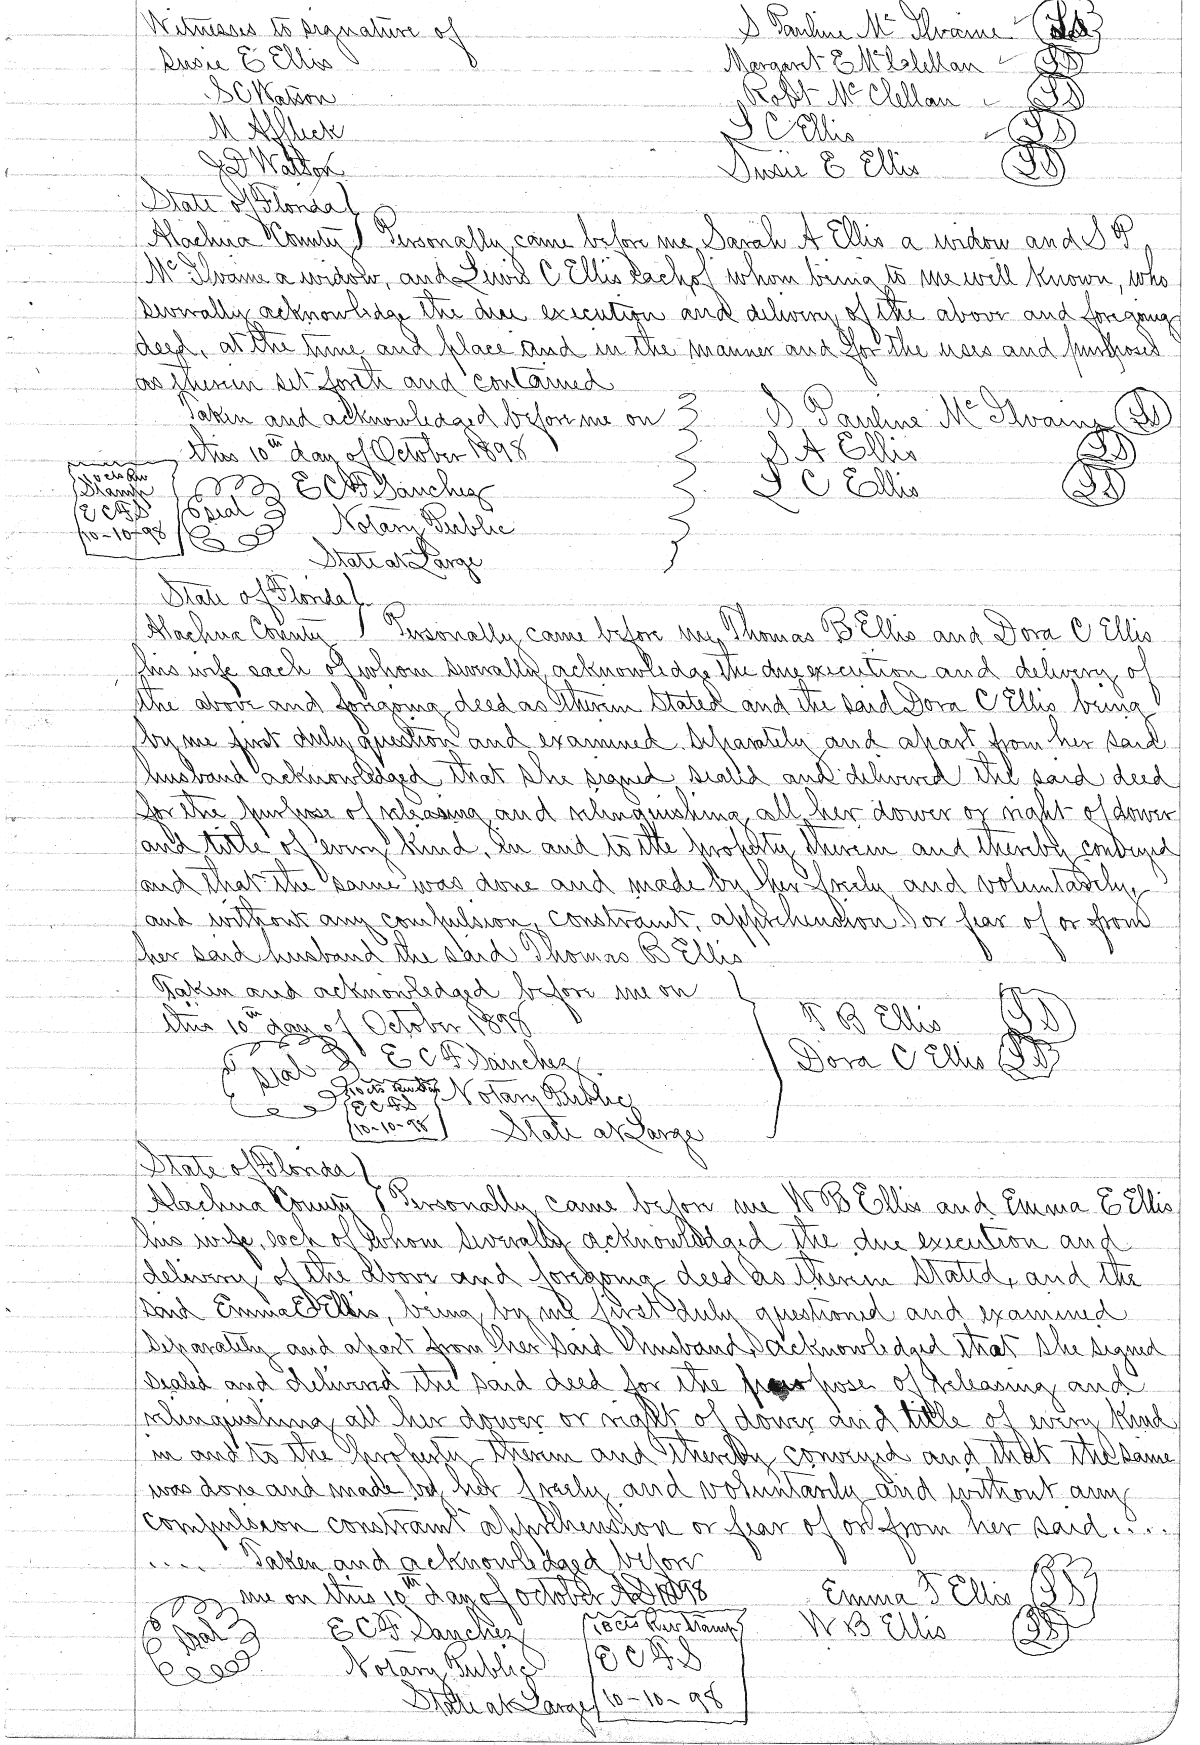 Witnesses to signature of S Pauline Mc Ilvaine LS
Susie E Ellis Margaret E McClellan LS
S C Watson Robt McClellan LS
M Affleck L C Ellis LS
J D Watson Susie E Ellis LS
State of Florida
Alachua County Personally came before me Sarah A Ellis a widow and S P
Mc Ilvaine a widow, and Lewis C Ellis each of whom being to me well known, who
severally acknowledge the due execution and delivery of the above and foregoing
deed, at the time and place and in the manner and for the uses and purposes
as therein set forth and contained
Taken and acknowledged before me on S Pauline Mc Ilvaine LS
this 10th day of October 1898 S A Ellis LS
10 cts Rev Stamp E C F S 10-10-98 Seal E C F Sanchez L C Ellis LS
Notary Public
State at Large
State of Florida
Alachua County Personally came before me, Thomas B Ellis and Dora C Ellis
his wife each of whom severally acknowledge the due execution and delivery of
the above and foregoing deed as therein stated and the said Dora C Ellis being
by me first duly question and examined separately and apart from her said
husband acknowledged that she signed sealed and delivered the said deed
for the purpose of releasing and relinquishing all her dower or right of dower
and title of every kind, in and to the property therein and thereby conveyed
and that the same was done and made by her freely and voluntarily,
and without any compulsion, constraint, apprehension or fear of or from
her said husband the said Thomas B Ellis
Taken and acknowledged before me on
this 10th day of October 1898 T B Ellis LS
Seal E C F Sanchez Dora C Ellis LS
E C F S Notary Public
10-10-98 State at Large
State of Florida
Alachua County Personally came before me W B Ellis and Emma E Ellis
his wife, each of whom severally acknowledged the due execution and
delivery of the above and foregoing deed as therein stated, and the
said Emma E Ellis, being by me first duly questioned and examined
separately and apart from her said husband, acknowledged that she signed
sealed and delivered the said deed for the purpose of releasing and
relinquishing all her dower or right of dower and title of every kind
in and to the property therein and thereby conveyed and that the same
was done and made by her freely and voluntarily and without any
compulsion constraint apprehension or fear of or from her said ....
.... Taken and acknowledged before
me on this 10th day of October AD 1898 Emma F Ellis LS
Seal E C F Sanchez 10 cts Rev Stamp W B Ellis LS
Notary Public E C F S
State at Large 10-10-98